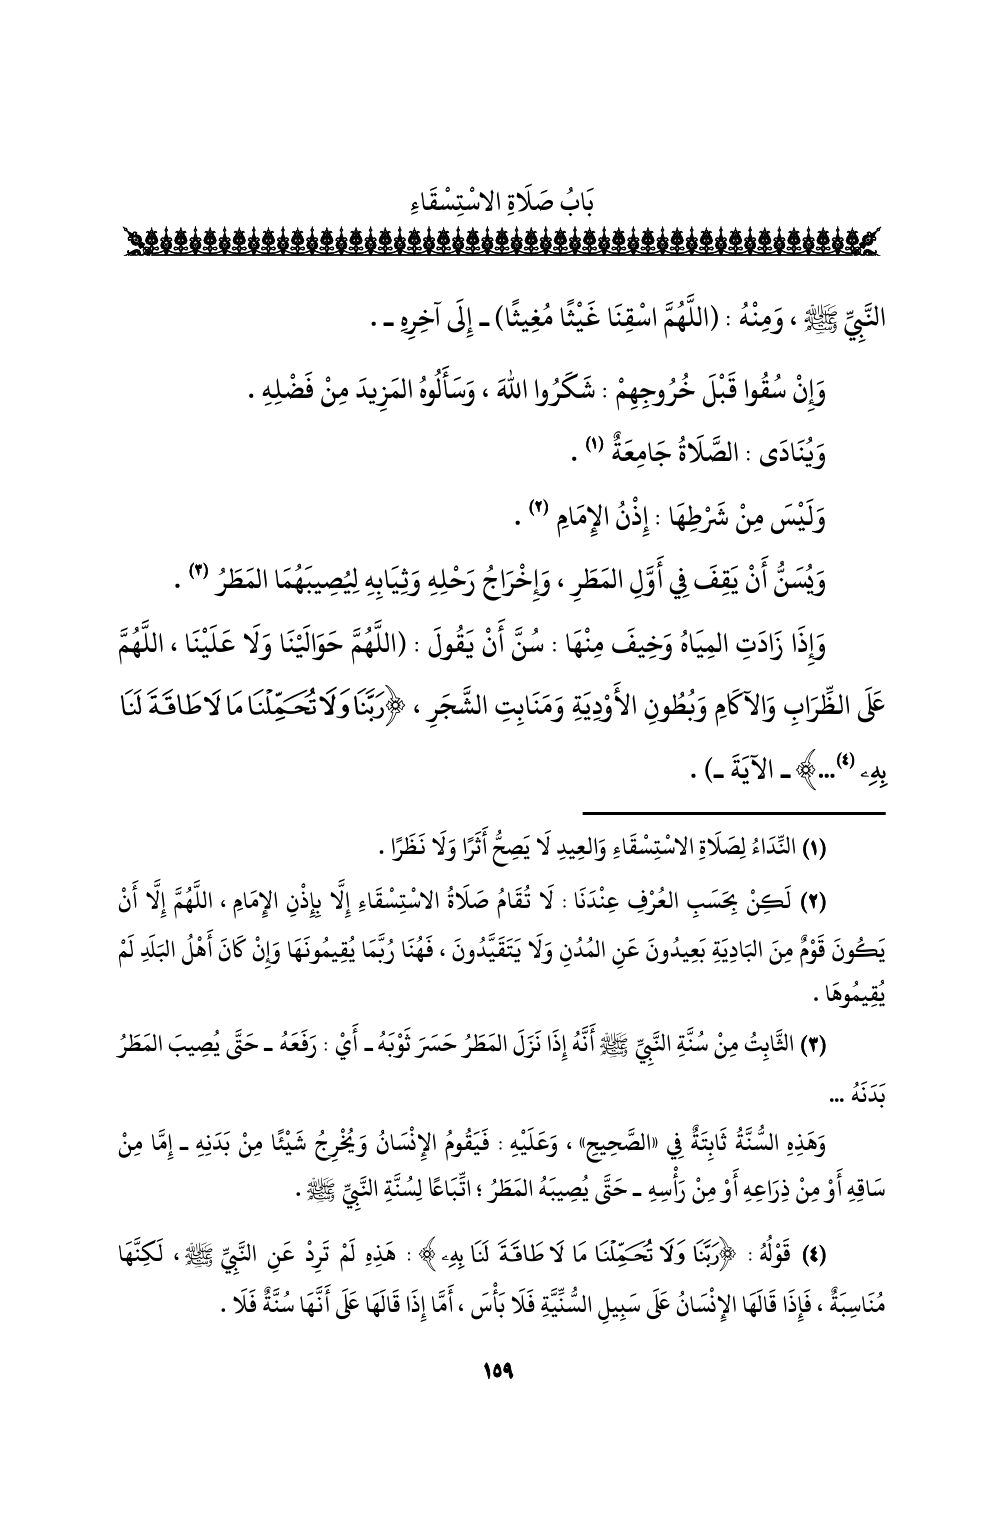 بَابُ صَلَاةِ الاسْتِسْقَاءِ
النَّبِيِّ ﷺ ، وَمِنْهُ : (اللَّهُمَّ اسْقِنَا غَيْثًا مُغِيثًا) ـ إِلَى آخِرِهِ ـ .
وَإِنْ سُقُوا قَبْلَ خُرُوجِهِمْ : شَكَرُوا اللهَ ، وَسَأَلُوهُ المَزِيدَ مِنْ فَضْلِهِ .
وَيُنَادَى : الصَّلَاةُ جَامِعَةٌ (١) .
وَلَيْسَ مِنْ شَرْطِهَا : إِذْنُ الإِمَامِ (٢) .
وَيُسَنُّ أَنْ يَقِفَ فِي أَوَّلِ المَطَرِ ، وَإِخْرَاجُ رَحْلِهِ وَثِيَابِهِ لِيُصِيبَهُمَا المَطَرُ (٣) .
وَإِذَا زَادَتِ المِيَاهُ وَخِيفَ مِنْهَا : سُنَّ أَنْ يَقُولَ : (اللَّهُمَّ حَوَالَيْنَا وَلَا عَلَيْنَا ، اللَّهُمَّ
عَلَى الظِّرَابِ وَالآكَامِ وَبُطُونِ الأَوْدِيَةِ وَمَنَابِتِ الشَّجَرِ ، ﴿رَبَّنَا وَلَا تُحَمِّلْنَا مَا لَا طَاقَةَ لَنَا
بِهِۦ (٤)...﴾ ـ الآيَةَ ـ) .
(١) النِّدَاءُ لِصَلَاةِ الاسْتِسْقَاءِ وَالعِيدِ لَا يَصِحُّ أَثَرًا وَلَا نَظَرًا .
(٢) لَكِنْ بِحَسَبِ العُرْفِ عِنْدَنَا : لَا تُقَامُ صَلَاةُ الاسْتِسْقَاءِ إِلَّا بِإِذْنِ الإِمَامِ ، اللَّهُمَّ إِلَّا أَنْ
يَكُونَ قَوْمٌ مِنَ البَادِيَةِ بَعِيدُونَ عَنِ المُدُنِ وَلَا يَتَقَيَّدُونَ ، فَهُنَا رُبَّمَا يُقِيمُونَهَا وَإِنْ كَانَ أَهْلُ البَلَدِ لَمْ
يُقِيمُوهَا .
(٣) الثَّابِتُ مِنْ سُنَّةِ النَّبِيِّ ﷺ أَنَّهُ إِذَا نَزَلَ المَطَرُ حَسَرَ ثَوْبَهُ ـ أَيْ : رَفَعَهُ ـ حَتَّى يُصِيبَ المَطَرُ
بَدَنَهُ ...
وَهَذِهِ السُّنَّةُ ثَابِتَةٌ فِي «الصَّحِيحِ» ، وَعَلَيْهِ : فَيَقُومُ الإِنْسَانُ وَيُخْرِجُ شَيْئًا مِنْ بَدَنِهِ ـ إِمَّا مِنْ
سَاقِهِ أَوْ مِنْ ذِرَاعِهِ أَوْ مِنْ رَأْسِهِ ـ حَتَّى يُصِيبَهُ المَطَرُ ؛ اتِّبَاعًا لِسُنَّةِ النَّبِيِّ ﷺ .
(٤) قَوْلُهُ : ﴿رَبَّنَا وَلَا تُحَمِّلْنَا مَا لَا طَاقَةَ لَنَا بِهِۦ﴾ : هَذِهِ لَمْ تَرِدْ عَنِ النَّبِيِّ ﷺ ، لَكِنَّهَا
مُنَاسِبَةٌ ، فَإِذَا قَالَهَا الإِنْسَانُ عَلَى سَبِيلِ السُّنِّيَّةِ فَلَا بَأْسَ ، أَمَّا إِذَا قَالَهَا عَلَى أَنَّهَا سُنَّةٌ فَلَا .
١٥٩